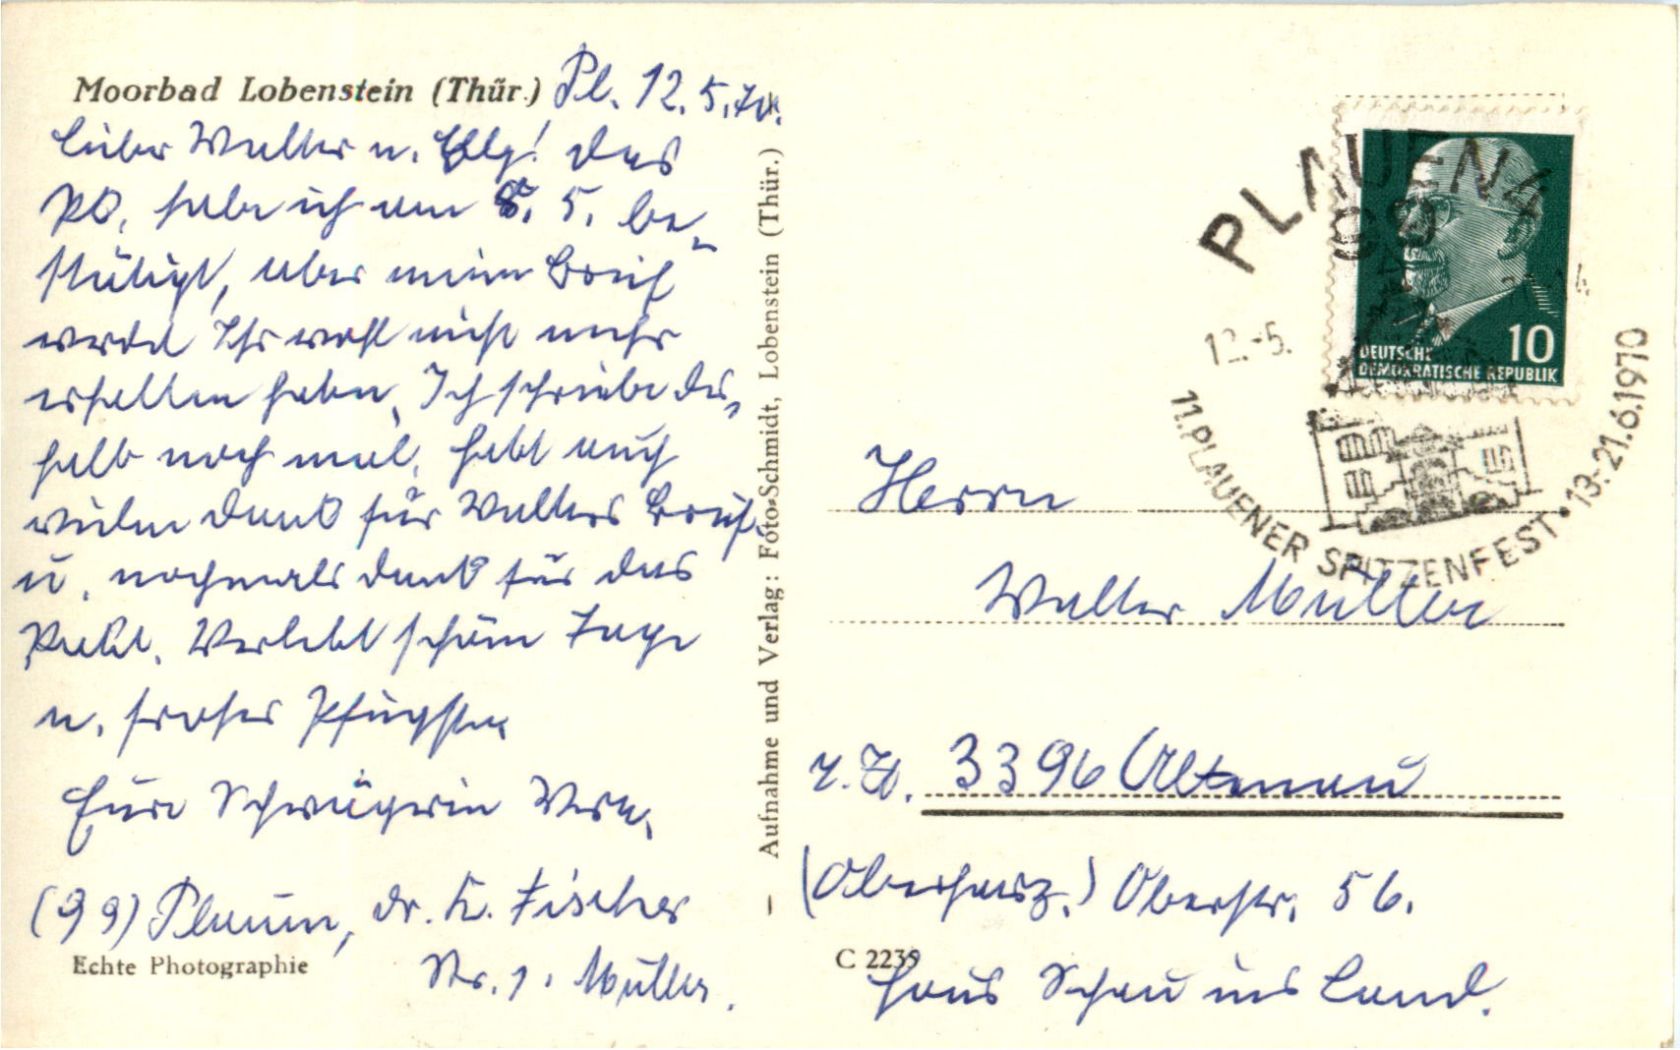 Moorbad Lobenstein (Thür.)
Pl. 12. 5. 70.
Lieber Walter u. Elly! Das
PO. habe ich am 5. 5. be-
stätigt, aber meinen Brief
werdet Ihr wohl nicht mehr
erhalten haben. Ich schreibe des-
halb noch mal. Habt auch
vielen Dank für Walters Brief.
u. nochmals Dank für das
Paket. Verlebt schöne Tage
u. frohes Pfingsten
Eure Schwägerin Vera.
(99) Plauen, Dr. K. Fischer
Str. 1. Müller.
Echte Photographie
Aufnahme und Verlag: Foto-Schmidt, Lobenstein (Thür.)
PLAUEN 4
99
12.-5.
11. PLAUENER SPITZENFEST • 13.-21.6.1970
10
DEUTSCHE
DEMOKRATISCHE REPUBLIK
Herrn
Walter Müller
z. Zt. 3396 Altenau
(Oberharz.) Oberstr. 56.
C 2239
Haus Schau ins Land.